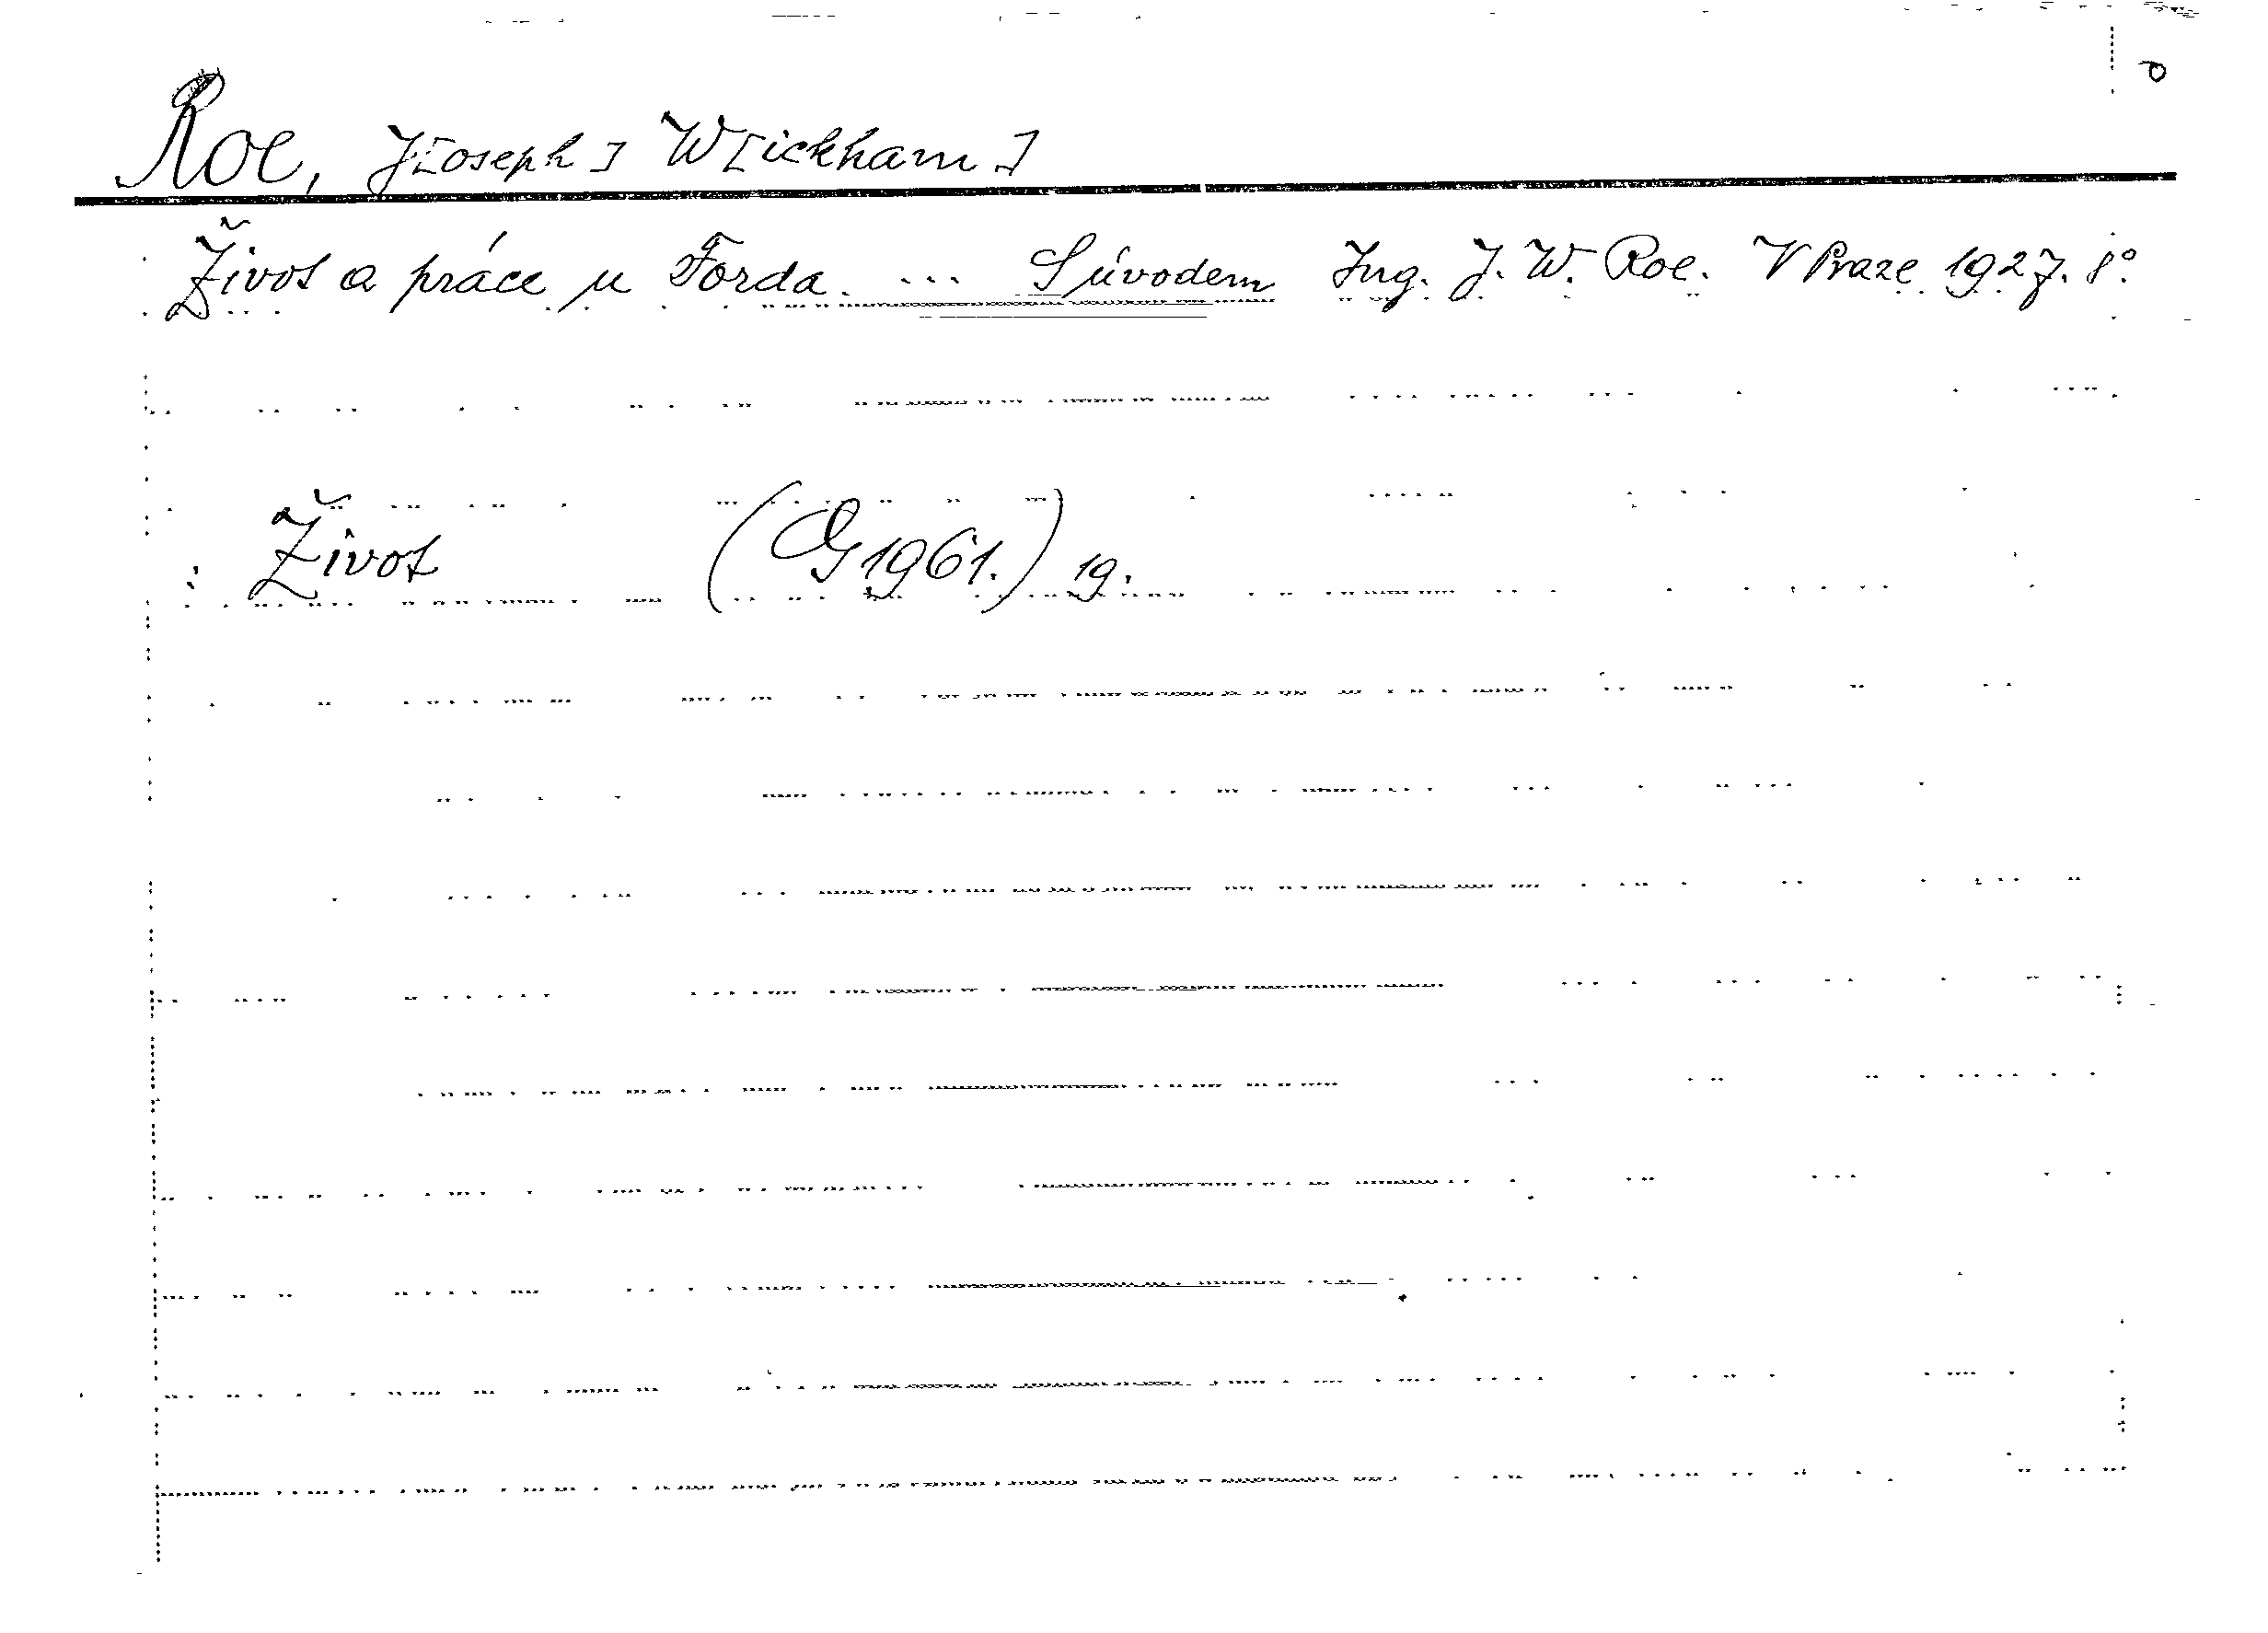 Roe, J[oseph] W[ickham]
Život a práce u Forda. ... S úvodem Ing. J. W. Roe. V Praze 1927. 8°
: Život (G 1961.) 19.